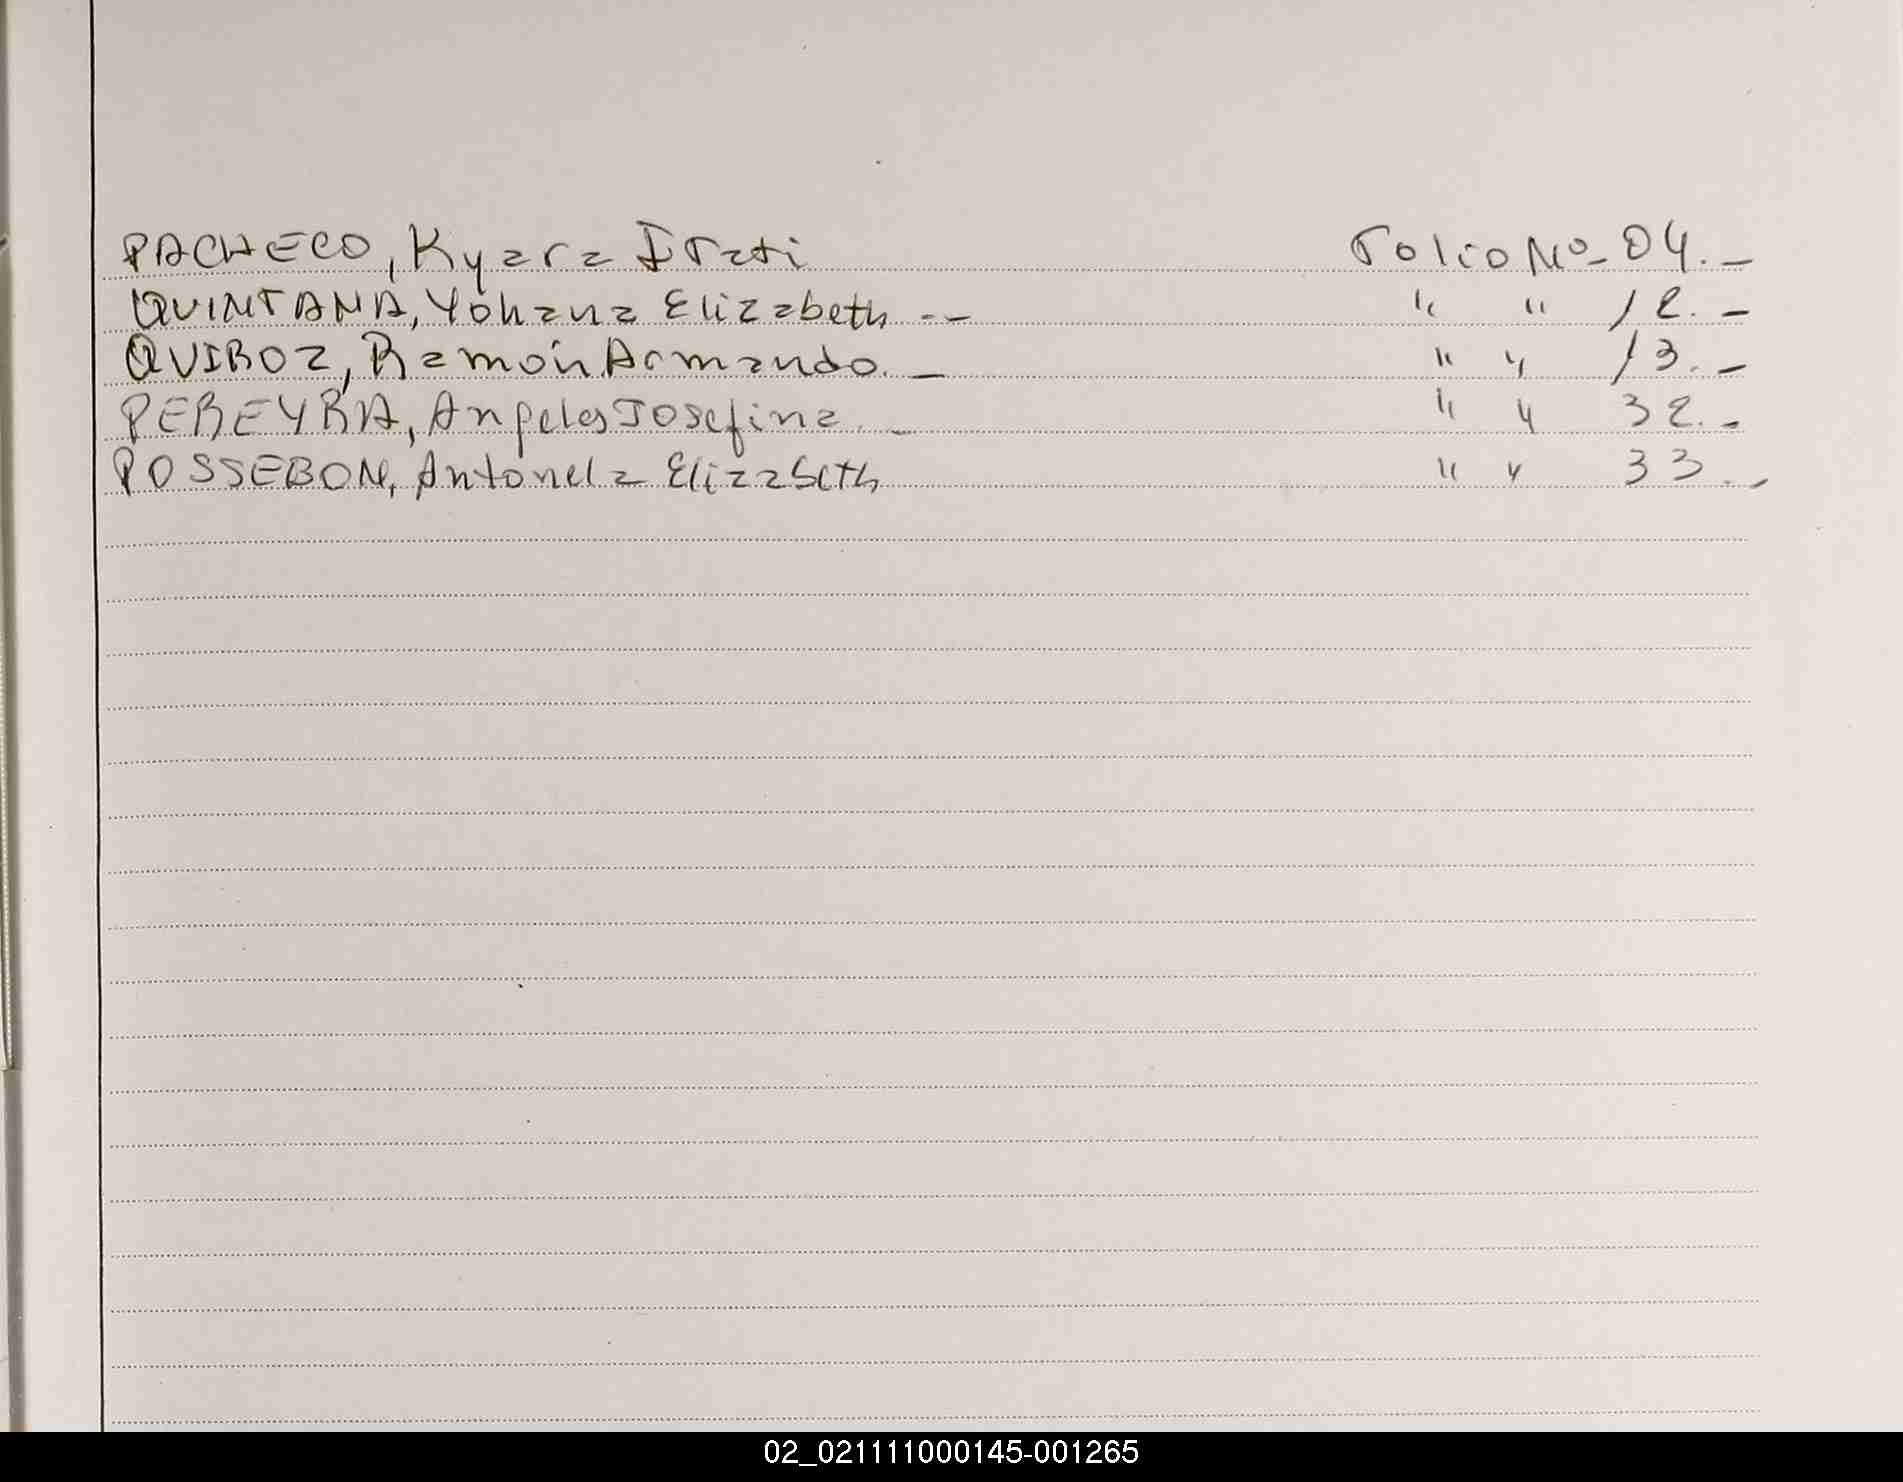 PACHECO, Kyara Irati Folio Nº- 04.-
QUINTANA, Yohana Elizabeth -- " " 12.-
QUIROZ, Ramón Armando.- " " 13.-
PEREYRA, Angeles Josefina.- " " 32.-
POSSEBON, Antonela Elizabeth " " 33.-
02_021111000145-001265